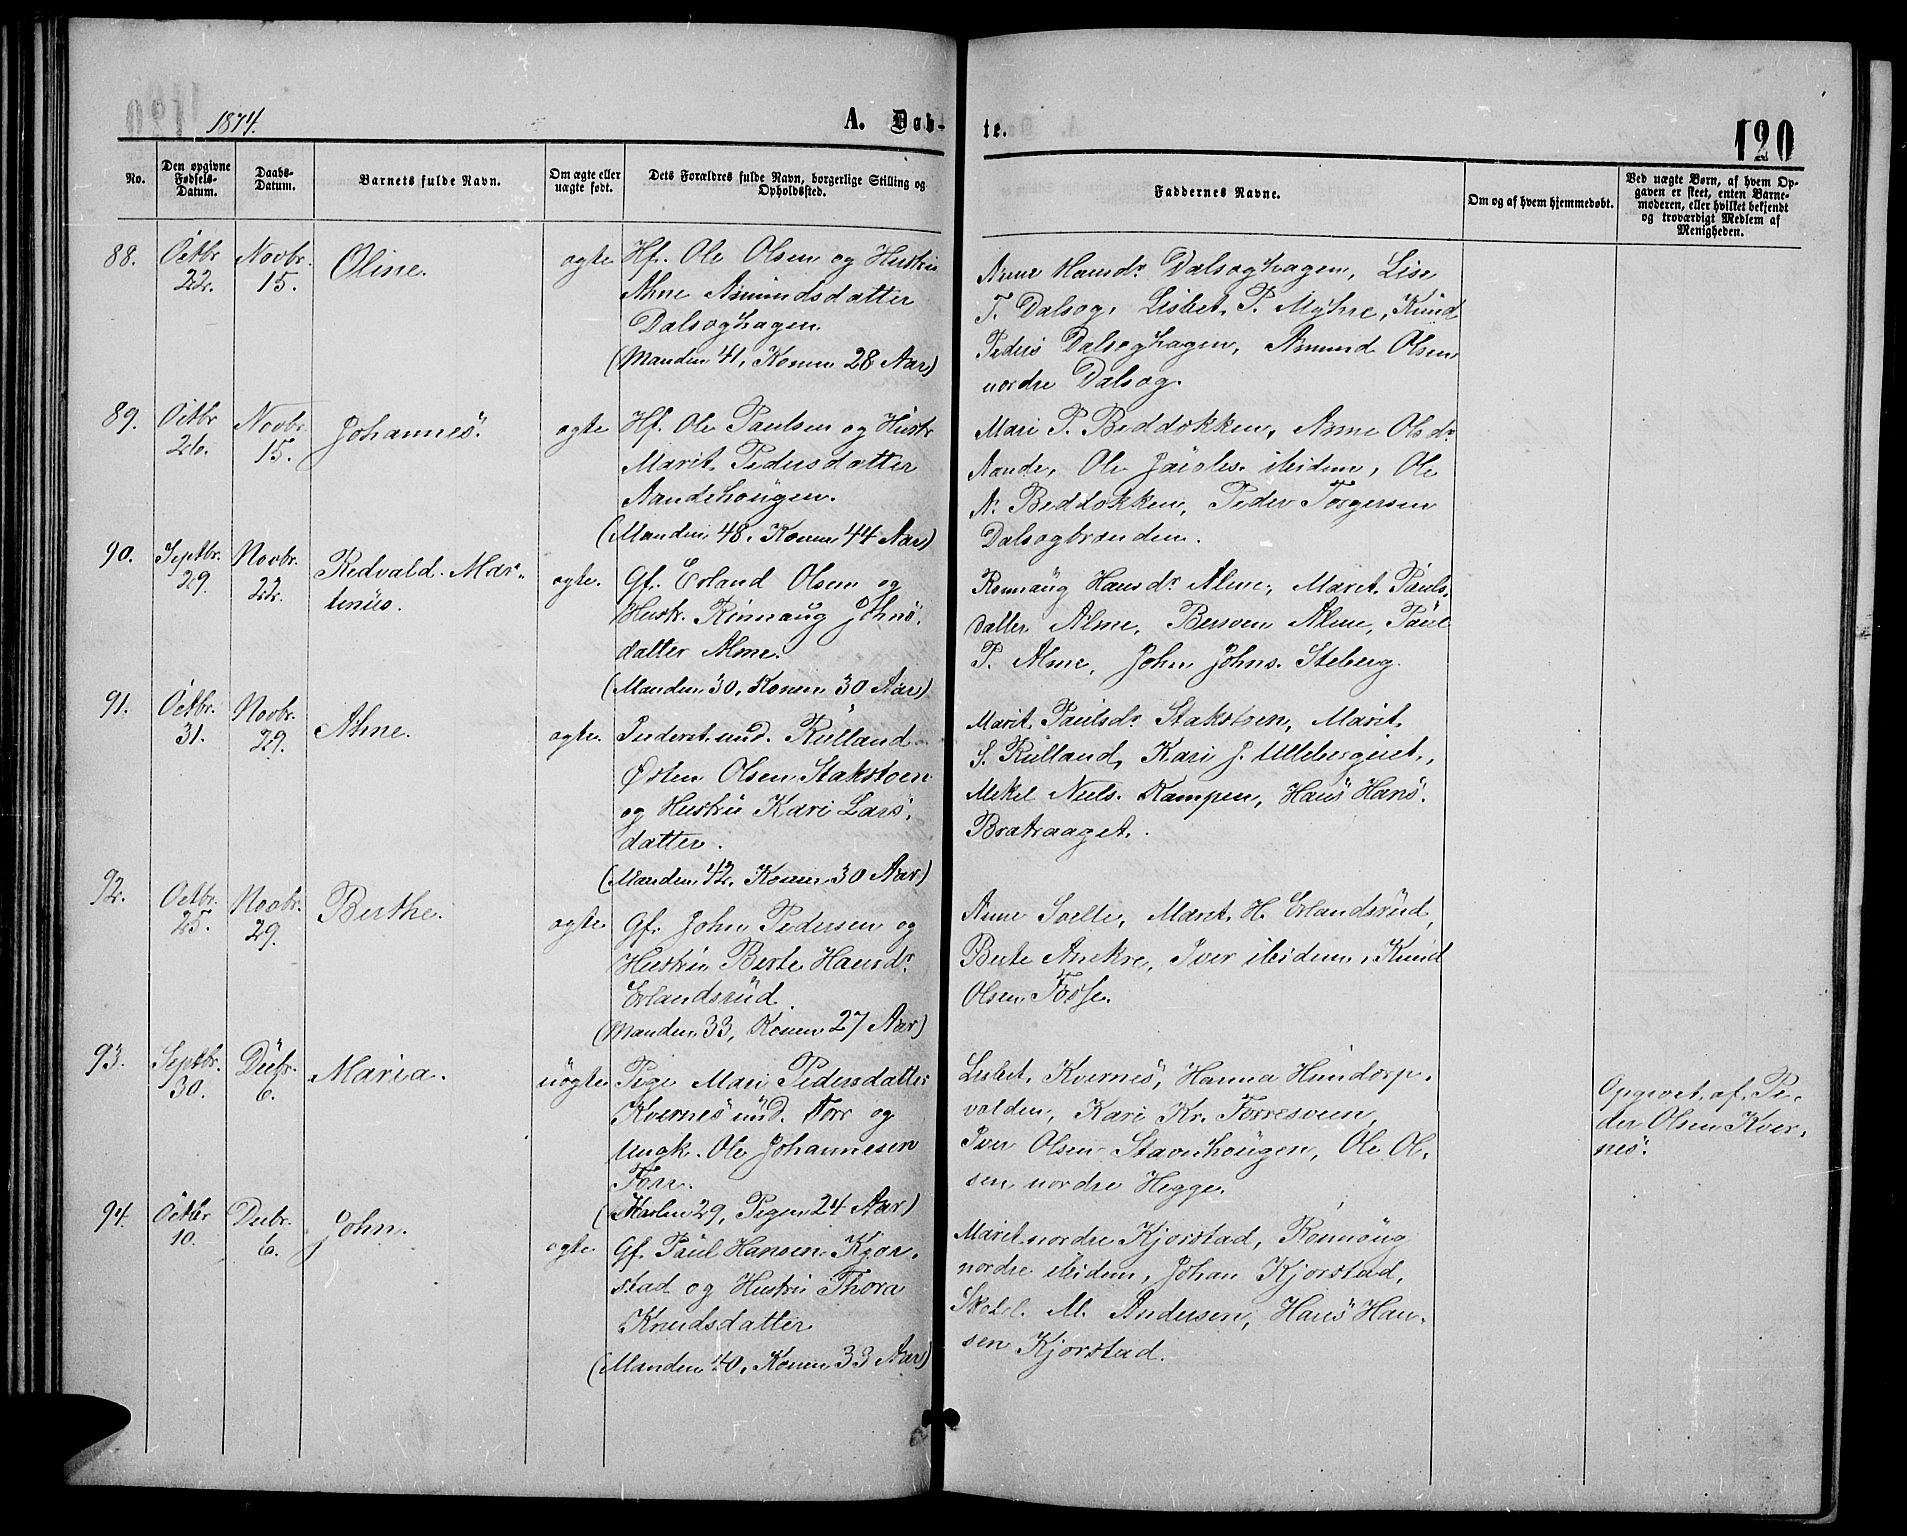 1874.
A. Døb-
te.
120
No.
Den opgivne Fødsels-Datum.
Daabs-Datum.
Barnets fulde Navn.
Om ægte eller uægte født.
Dets Forældres fulde Navn, borgerlige Stilling og Opholdssted.
Faddernes Navne.
Om og af hvem hjemmedøbt.
Ved uægte Børn, af hvem Op-
gaven er skeet, enten Barne-
moderen, eller hvilket bekjendt
og troværdigt Medlem af
Menigheden.
88. Octbr 22. Novbr. 15. Oline. ægte
Hf. Ole Olsen og Hustru
Ahne Amundsdatter
Dalsoghagen.
(Manden 41, Konen 28 Aar)
Anne Hansdr Dalsoghagen, Lise
T. Dalsog, Lisbet P. Myhre, Knud
Peders Dalsoghagen, Amund Olsen
nordre Dalsog.
89. Octbr 26. Novbr. 15. Johannes. ægte
Hf. Ole Paulsen og Hustr
Marit Pedersdatter
Aandehougen.
(Manden 48, Konen 44 Aar)
Mari P. Beddokken, Anne Olsdr
Aande, Ole Jacobs. ibidem, Ole
A. Beddokken, Peder Torgersen
Dalsogbranden.
90. Septbr. 29. Novbr. 22. Redvald Mar-
tinus. ægte.
Gf. Erland Olsen og
Hustr. Rinnaug Johns-
datter Alme.
(Manden 30, Konen 30 Aar)
Ronnaug Hansdr Alme, Maret Pauls-
datter Alme, Bersven Alme, Paul
P. Alme, John Johns. Steberg.
91. Octbr. 31. Novbr. 29. Ahne. ægte.
Inderst und. Rulland
Østen Olsen Stakstoen
og Hustru Kari Lars-
datter.
(Manden 42, Konen 30 Aar)
Marit Paulsdr Stakstoen, Marit
S. Rulland, Kari J. Ulleberg
Mekel Niels. Kampen, Hans Hans.
Bratraaget.
92. Octbr. 25. Novbr. 29. Berthe. ægte
Gf. John Pedersen og
Hustru Berte Hansdr
Erlandsrud.
(Manden 33, Konen 27 Aar)
Anne Maret H. Erlandsrud,
Berte Anekre, Iver ibidem, Knud
Olsen Fosse.
93. Septbr. 30. Decbr. 6. Maria. uægte
Pige Mari Pedersdatter
Kvernes und. Forr og
Ungk. Ole Johannesen
Forr.
(Karlen 29, Pigen 24 Aar)
Lisbet Kvernes, Hanna Hundorp-
valden, Kari Kr. Forresveen,
Iver Olsen Stavehougen, Ole Ol-
sen nordre Hegge.
Opgivet af Pe-
der Olsen Kver-
nes.
94. Octbr 10. Decbr. 6. John. ægte
Gf. Paul Hansen Kjor-
stad og Hustru Thora
Knudsdatter
(Manden 40, Konen 33 Aar)
Maret nordre Kjorstad, Ronnoug
nordre ibidem, Johan Kjorstad,
Skolel. M. Andersen, Hans Han-
sen Kjorstad.